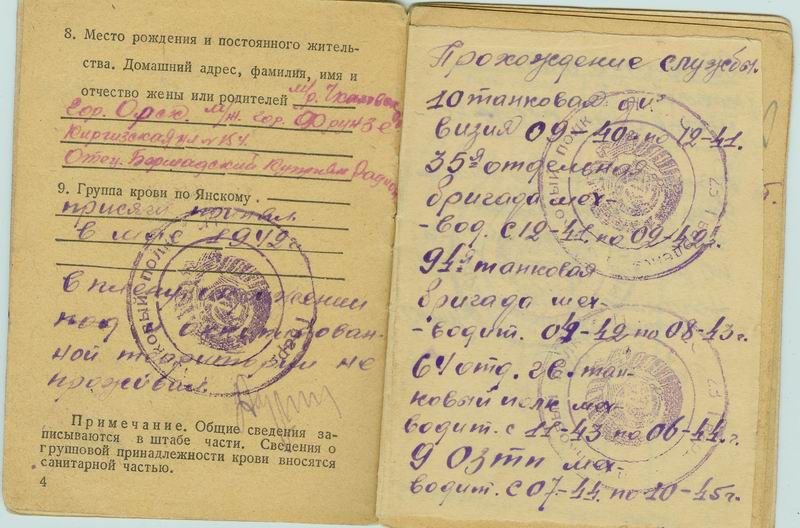 8. Место рождения и постоянного житель-
ства. Домашний адрес, фамилия, имя и
отчество жены или родителей
гор. Орск гор. Фрунзе
Киргизская
Отец.
9. Группа крови по Янскому.
присягу принял
в мае 1942 г
в плену окружении
под оккупирован-
ной территории не
проживал
Примечание. Общие сведения за-
писываются в штабе части. Сведения о
групповой принадлежности крови вносятся
санитарной частью.
4
Прохождение службы.
10 танковая ди-
визия 09-40 г по 12-41.
35я отдельная
бригада мех-
-вод. с 12-41. по 02-42 г.
91я танковая
бригада мех-
-водит. 02-42 по 08-43 г.
64 отд. гв. тан-
ковый полк мех-
водит. с 11-43 по 06-44. г.
9 ОЗТП мех-
водит. с 07-44. по 10-45 г.